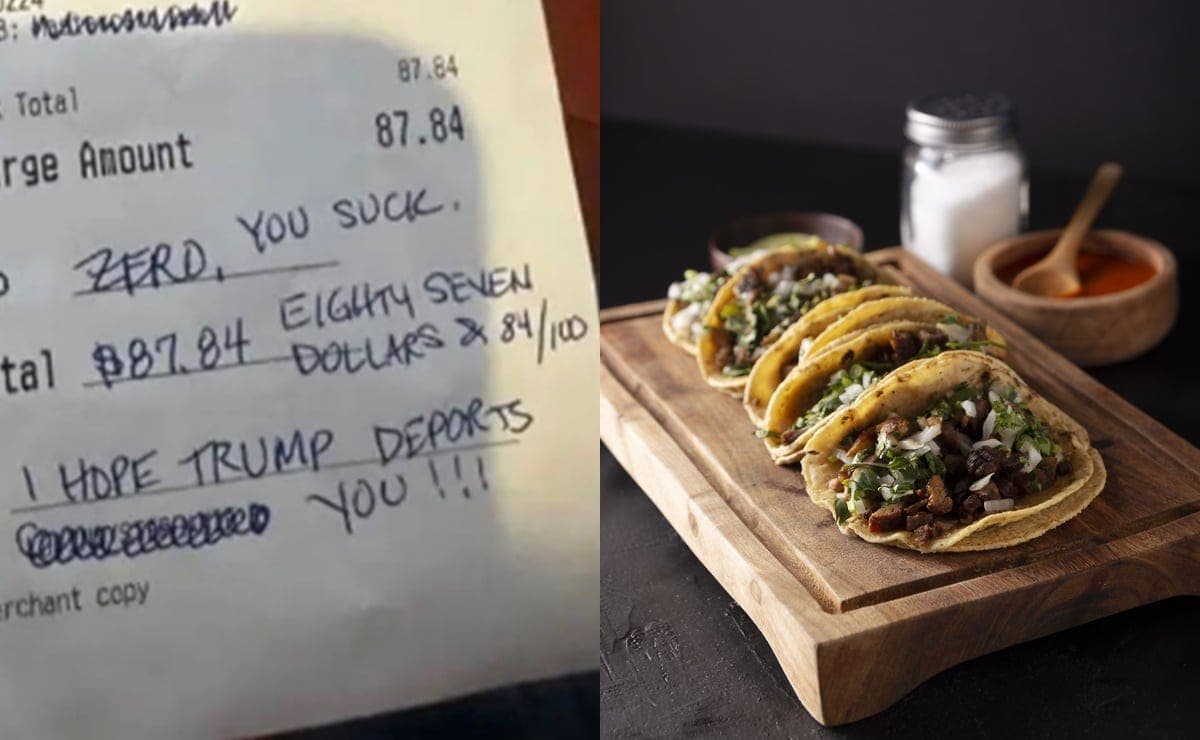 0224
87.84
Total
87.84
rge Amount
ZERO, YOU SUCK.
tal $87.84 EIGHTY SEVEN
DOLLARS & 84/100
I HOPE TRUMP DEPORTS
YOU !!!
erchant copy